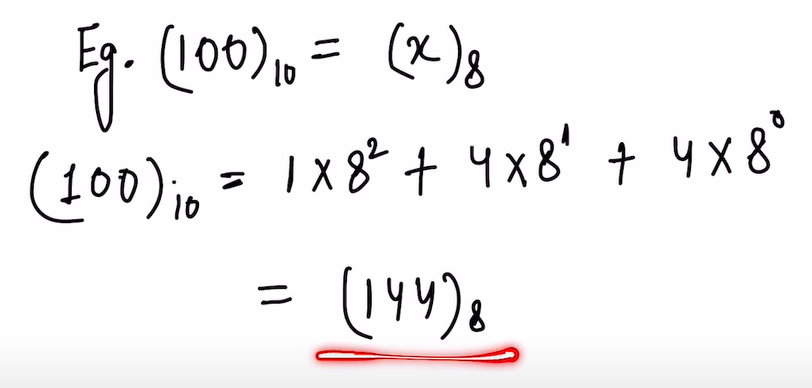 Eg. (100)₁₀ = (x)₈
(100)₁₀ = 1 × 8² + 4 × 8¹ + 4 × 8⁰
= (144)₈